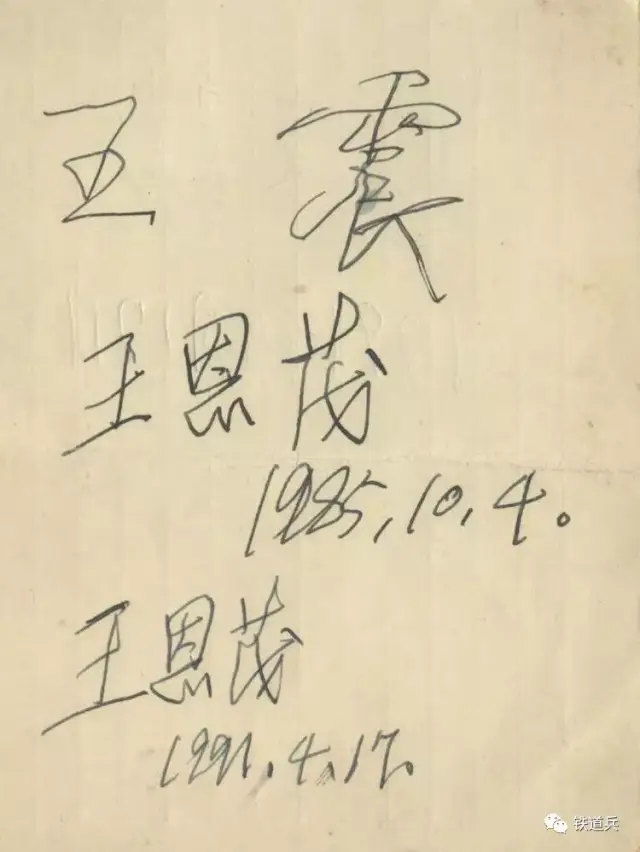 王 震
王恩茂
1985.10.4。
王恩茂
1991.4.17.
铁道兵